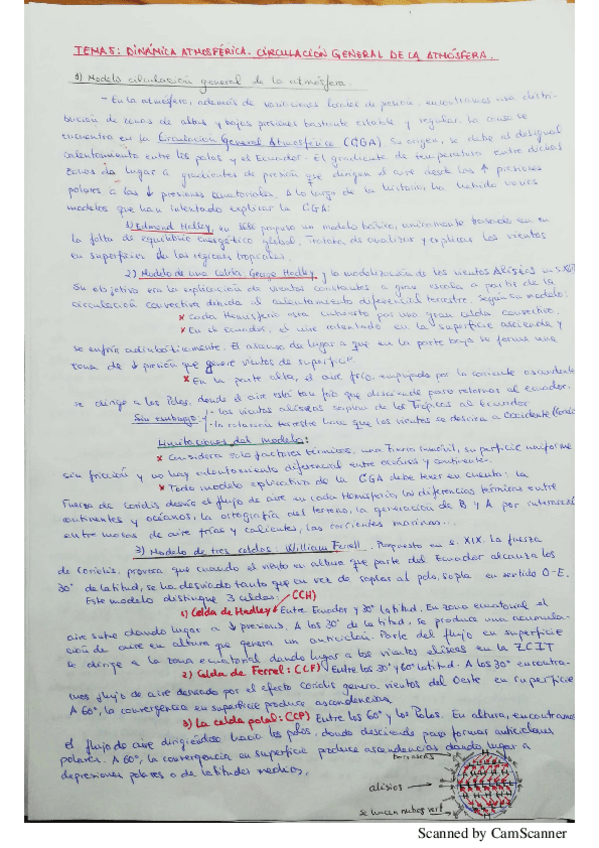 TEMA 5: DINÁMICA ATMOSFÉRICA. CIRCULACIÓN GENERAL DE LA ATMÓSFERA.
Modelo circulación general de la atmósfera.
- En la atmósfera, además de variaciones locales de presión, encontramos una distri-
bución de zonas de altas y bajas presiones bastante estable y regular. La causa se
encuentra en la Circulación General Atmosférica (CGA). Su origen, se debe al desigual
calentamiento entre los polos y el Ecuador. El gradiente de temperatura entre dichas
zonas da lugar a gradientes de presión que dirigen el aire desde las ↑ presiones
polares a las ↓ presiones ecuatoriales. A lo largo de la historia ha habido varios
modelos que han intentado explicar la CGA:
1) Edmond Hadley, en 1686 propuso un modelo básico, unicamente basado en
la falta de equilibrio energético global, trataba de analizar y explicar los vientos
en superficie de las regiones tropicales.
2) Modelo de una celda. George Hadley y la modelización de los vientos Alisios en s.XVIII
Su objetivo era la explicación de vientos constantes a gran escala a partir de la
circulación convectiva debida al calentamiento diferencial terrestre. Según su modelo:
× Cada Hemisferio está cubierto por una gran celda convectiva.
× En el ecuador, el aire calentado en la superficie asciende y
se enfría adiabáticamente. El ascenso da lugar a que en la parte baja se forme una
zona de ↓ presión que genere vientos de superficie
× En la parte alta, el aire frío, empujado por la corriente ascendente
se dirige a los Polos, donde el aire está tan frío que desciende para retornar al ecuador.
Sin embargo: - los vientos alisios soplan de los Trópicos al Ecuador
- la rotación terrestre hace que los vientos se desvíen a Occidente
Limitaciones del modelo:
× Considera solo factores térmicos, una Tierra inmóvil, superficie uniforme
sin fricción y no hay calentamiento diferencial entre océanos y continentes.
× Todo modelo explicativo de la CGA debe tener en cuenta: la
Fuerza de coriolis desvía el flujo de aire en cada hemisferio, las diferencias térmicas entre
continentes y océanos, la ortografía del terreno, la generación de B y A por
entre masas de aire frías y calientes, las corrientes marinas...
3) Modelo de tres celdas: William Ferell. Propuesto en s. XIX. La fuerza
de coriolis, provoca que cuando el viento en altura que parte del Ecuador alcanza los
30° de latitud, se ha desviado tanto que en vez de soplar al polo, sopla en sentido O-E.
Este modelo distingue 3 celdas: (CCH)
1) Celda de Hadley Entre Ecuador y 30° latitud. En zona ecuatorial el
aire sube dando lugar a ↓ presiones. A los 30° de latitud, se produce una acumula-
ción de aire en altura que genera un anticiclón. Parte del flujo en superficie
se dirige a la zona ecuatorial dando lugar a los vientos alisios en la ZCIT
2) Celda de Ferrel: (CCF) Entre los 30° y 60° latitud. A los 30° encontra-
mos flujo de aire desviado por el efecto coriolis genera vientos del Oeste en superficie
A 60°, la convergencia en superficie produce ascendencias.
3) La celda polar: (CCP) Entre los 60° y los Polos. En altura, encontramos
el flujo de aire dirigiéndose hacia los polos, donde desciende para formar anticiclones
polares. A 60°, la convergencia en superficie produce ascendencias dando lugar a
depresiones polares o de latitudes medias.
alisios
Scanned by CamScanner